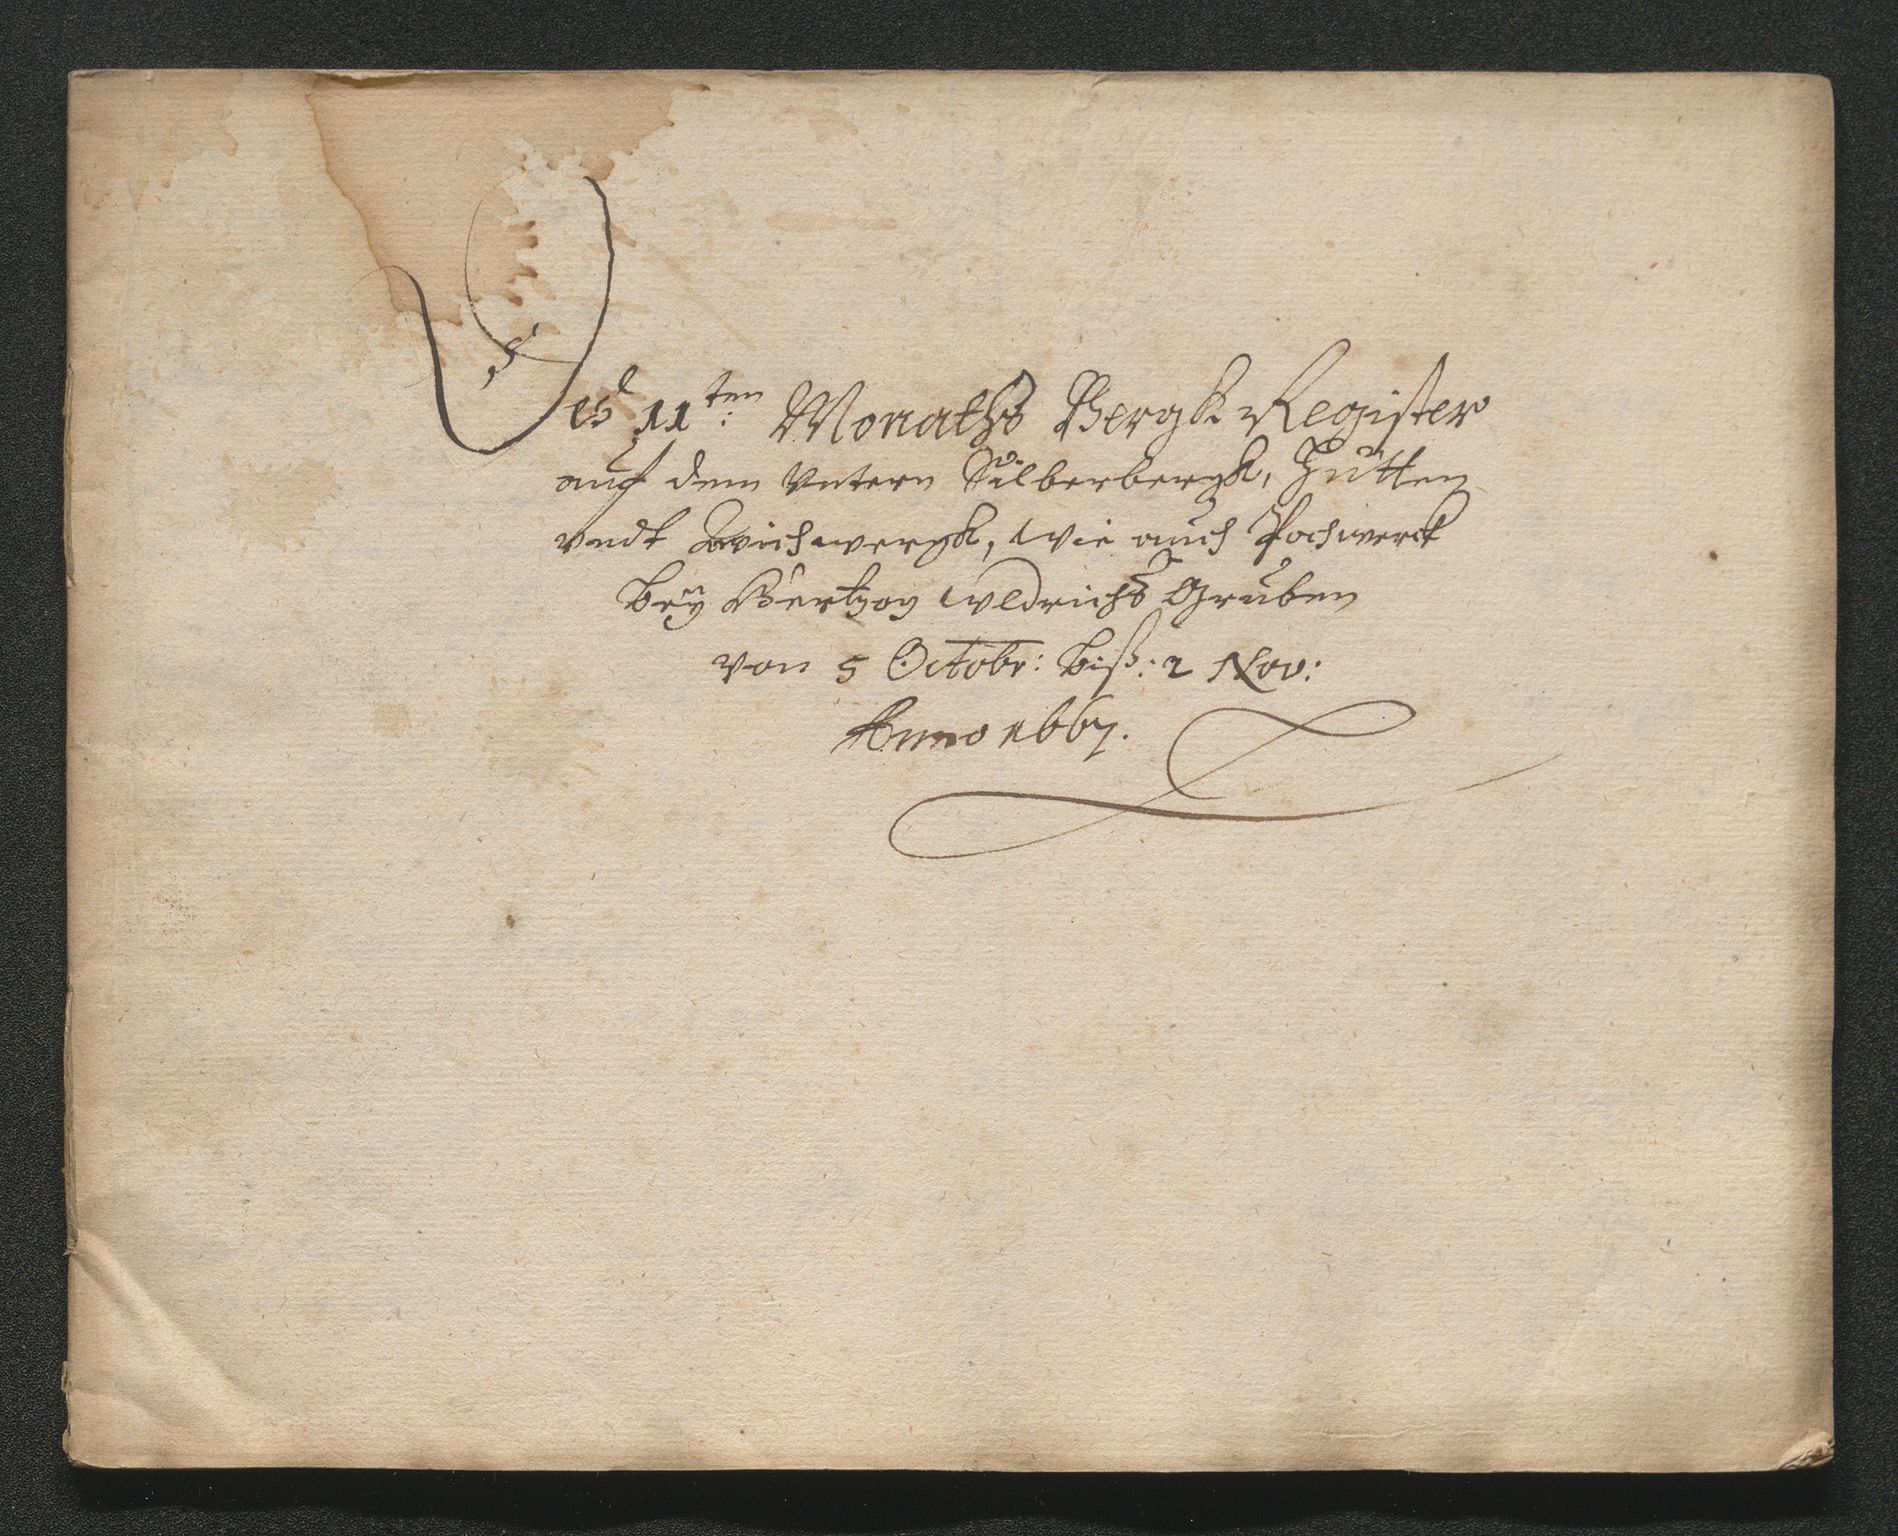 Des 11ten: Monaths Bergk Register
auf dem Vntern Silberbergk, Hütten
vndt Zwichwergk, wie auch Pochwerck
beÿ Hertzog Vldrichs Gruben
von 5 Octobr: biß: 2 Nov:
Anno 1667.